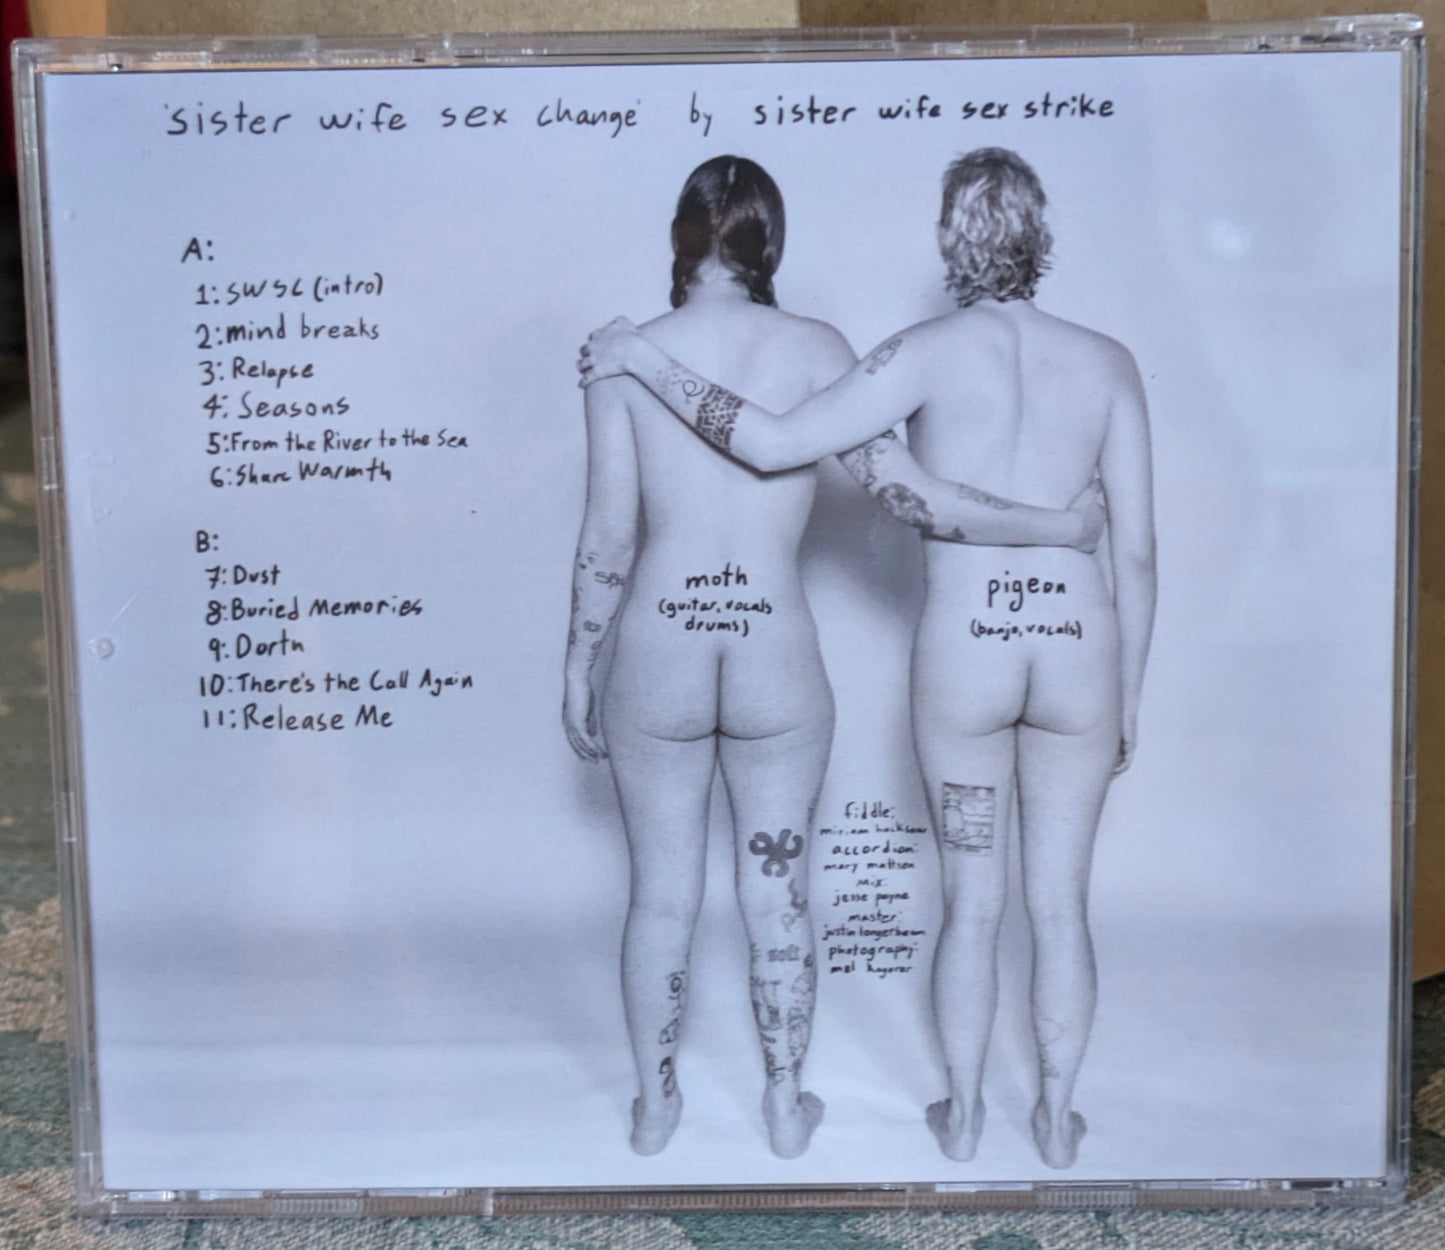 'sister wife sex change' by sister wife sex strike
A:
1: SWSC (intro)
2: mind breaks
3: Relapse
4: Seasons
5: From the River to the Sea
6: Share Warmth
B:
7: Dust
8: Buried Memories
9: Dortn
10: There's the Call Again
11: Release Me
moth
(guitar, vocals
drums)
pigeon
(banjo, vocals)
fiddle:
miriam
accordion:
mary mattson
mix:
jesse payne
master:
justin longerbeam
photography:
mel
soft